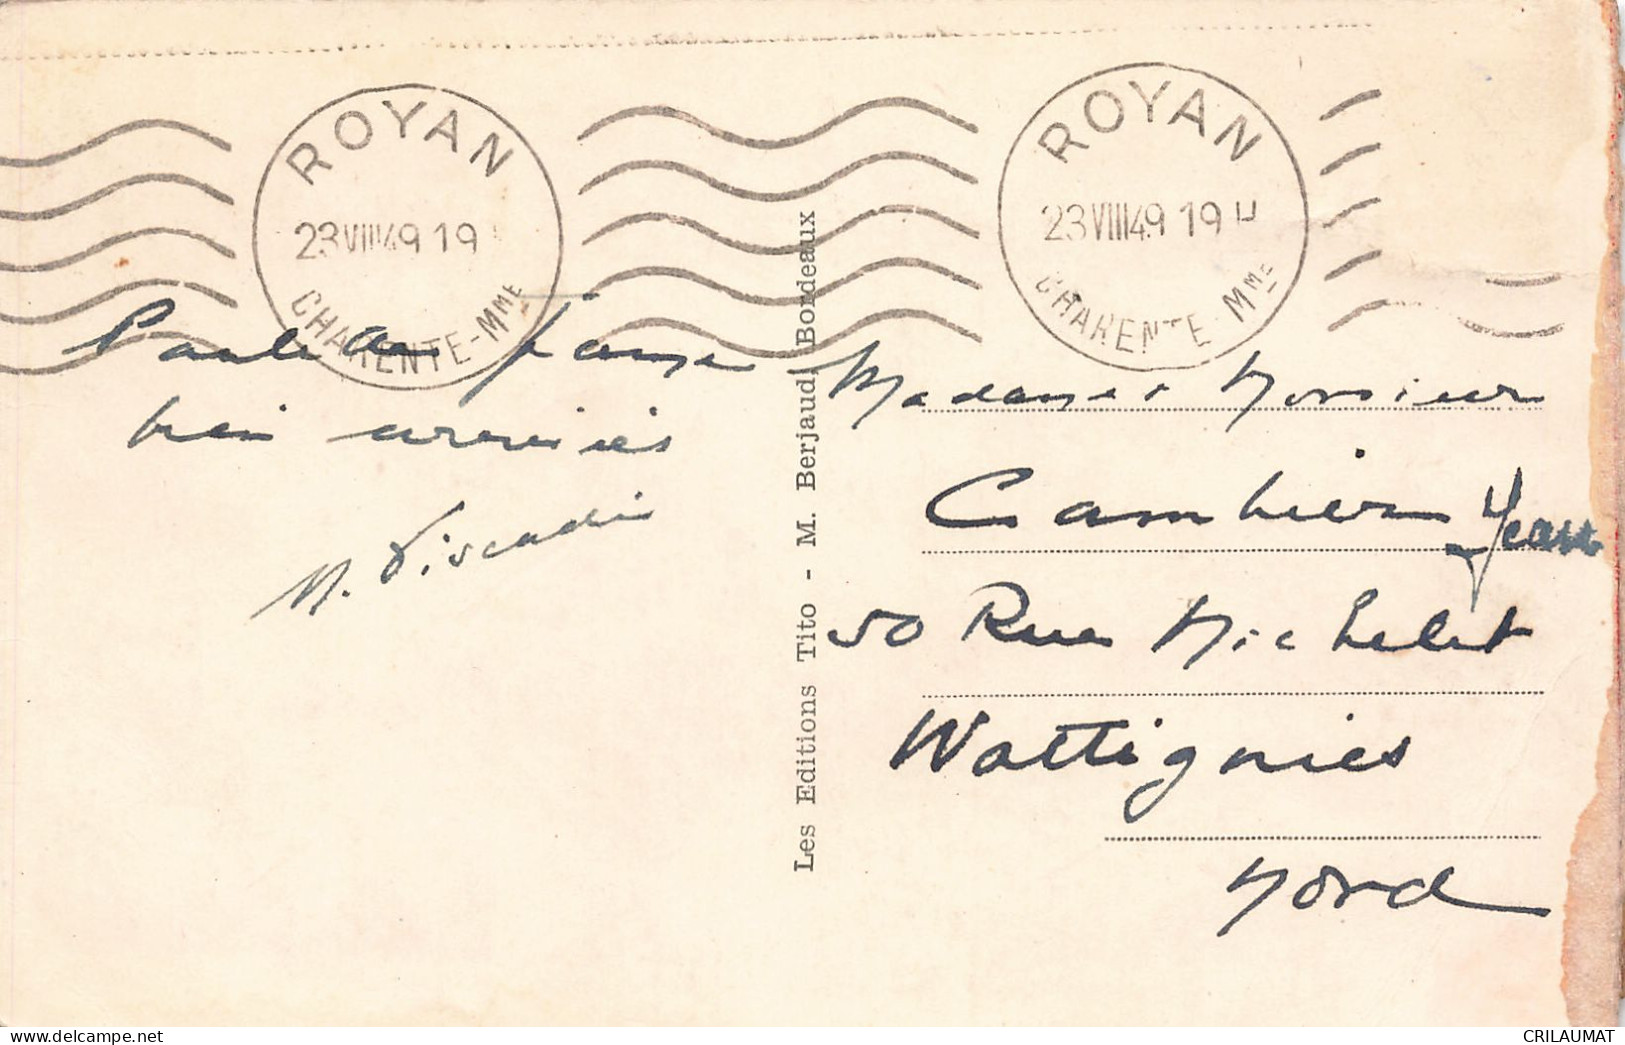 ROYAN
23VIII49 19
CHARENTE-MME
ROYAN
23VIII49 19 H
CHARENTE-MME
bien arrivés
Les Editions Tito - M. Berjaud, Bordeaux
Madame & Monsieur
Cambier Jean
50 Rue Michelet
Wattignies
Nord
delcampe.net
CRILAUMAT